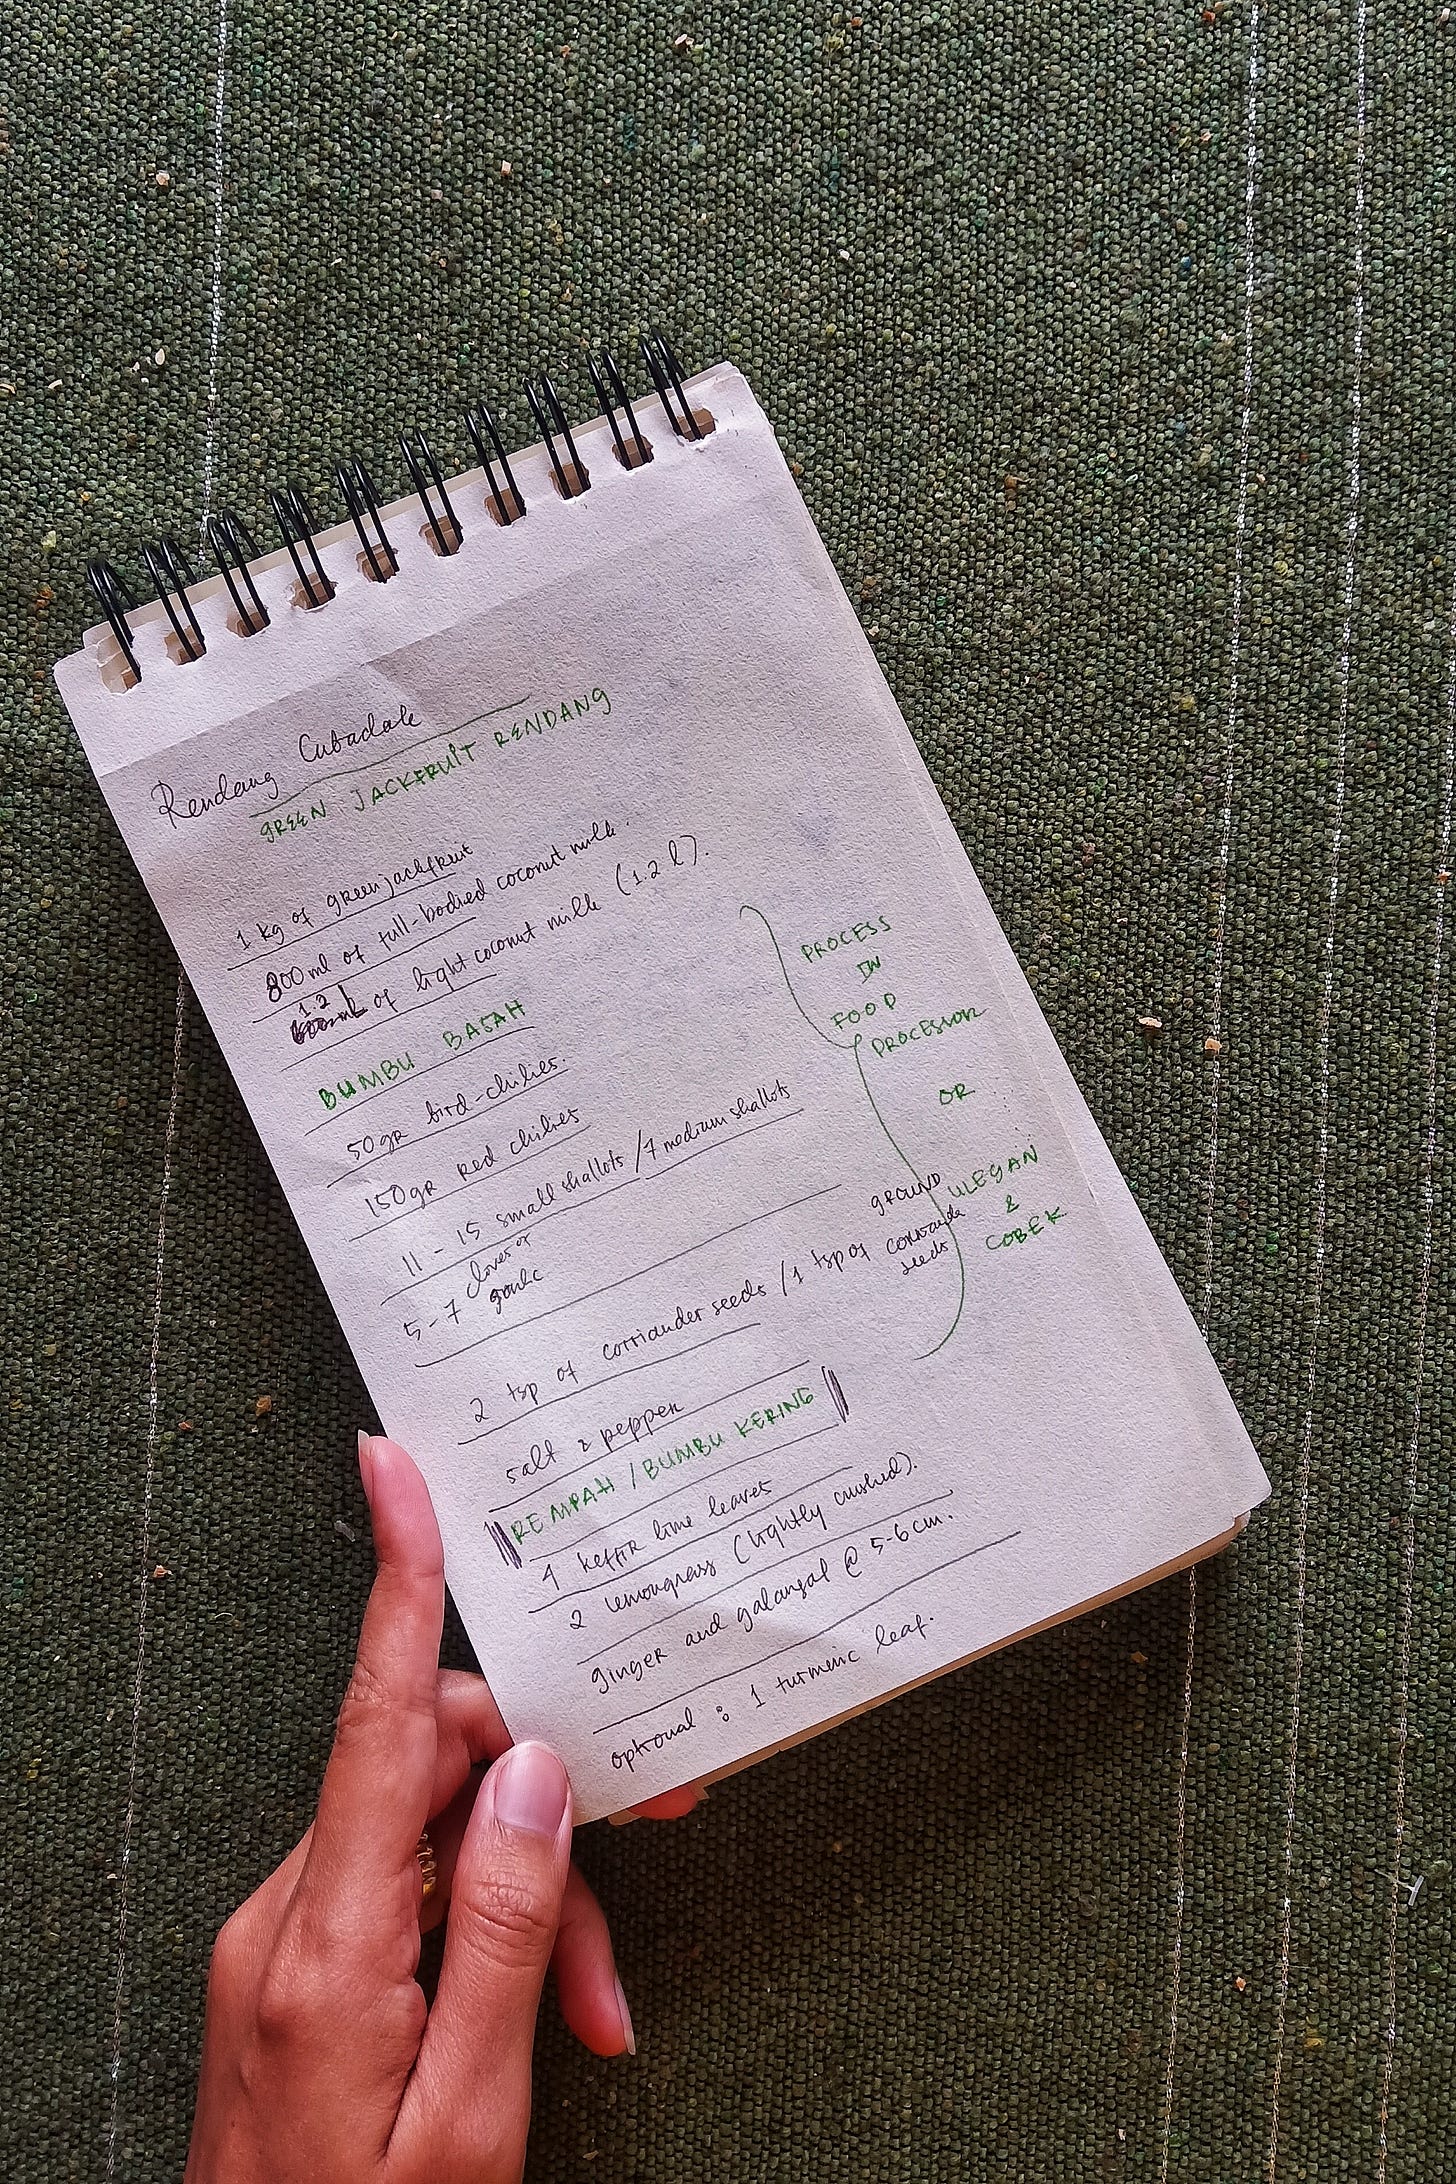 Rendang Cubadak
GREEN JACKFRUIT RENDANG
1 kg of green jackfruit
800 ml of full-bodied coconut milk.
1.2 l of light coconut milk (1.2 l).
BUMBU BASAH
50gr bird-chilies.
150gr red chilies
11 - 15 small shallots / 7 medium shallots
5 - 7 cloves of
garlic
2 tsp of corriander seeds / 1 tsp of
GROUND
seeds
salt & pepper
PROCESS
IN
FOOD
PROCESSOR
OR
ULEGAN
&
COBEK
REMPAH / BUMBU KERING
4 keffir lime leaves
2 lemongrass (lightly crushed).
ginger and galangal @ 5-6 cm.
optional : 1 turmeric leaf.